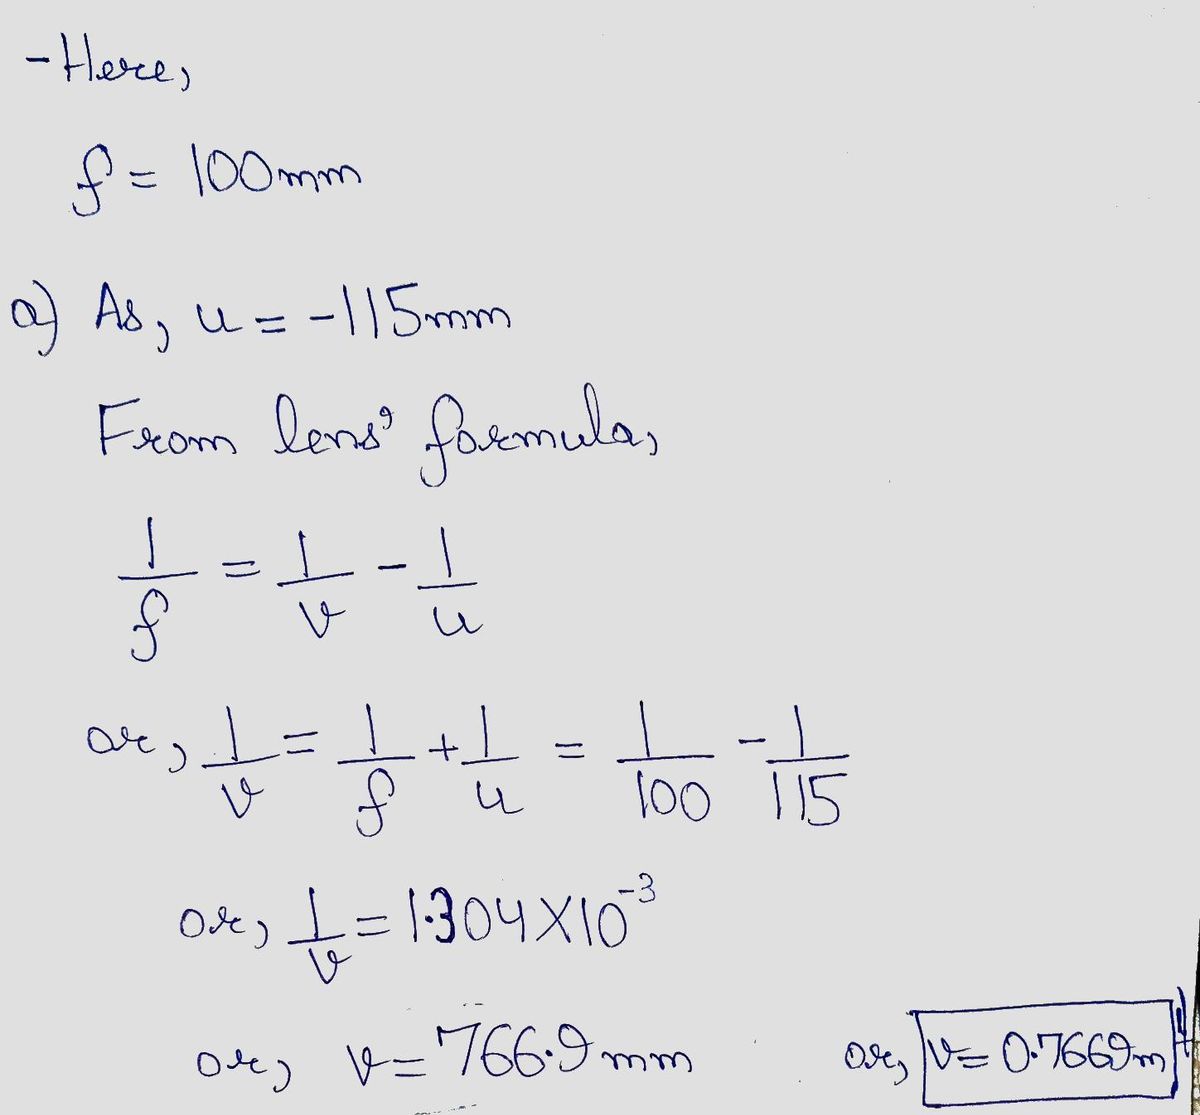 - Here,
f = 100mm
a) As, u = -115mm
From lens' formula,
1/f = 1/v - 1/u
or, 1/v = 1/f + 1/u = 1/100 - 1/115
or, 1/v = 1.304 X 10^-3
or, v = 766.9 mm
or, v = 0.7669m